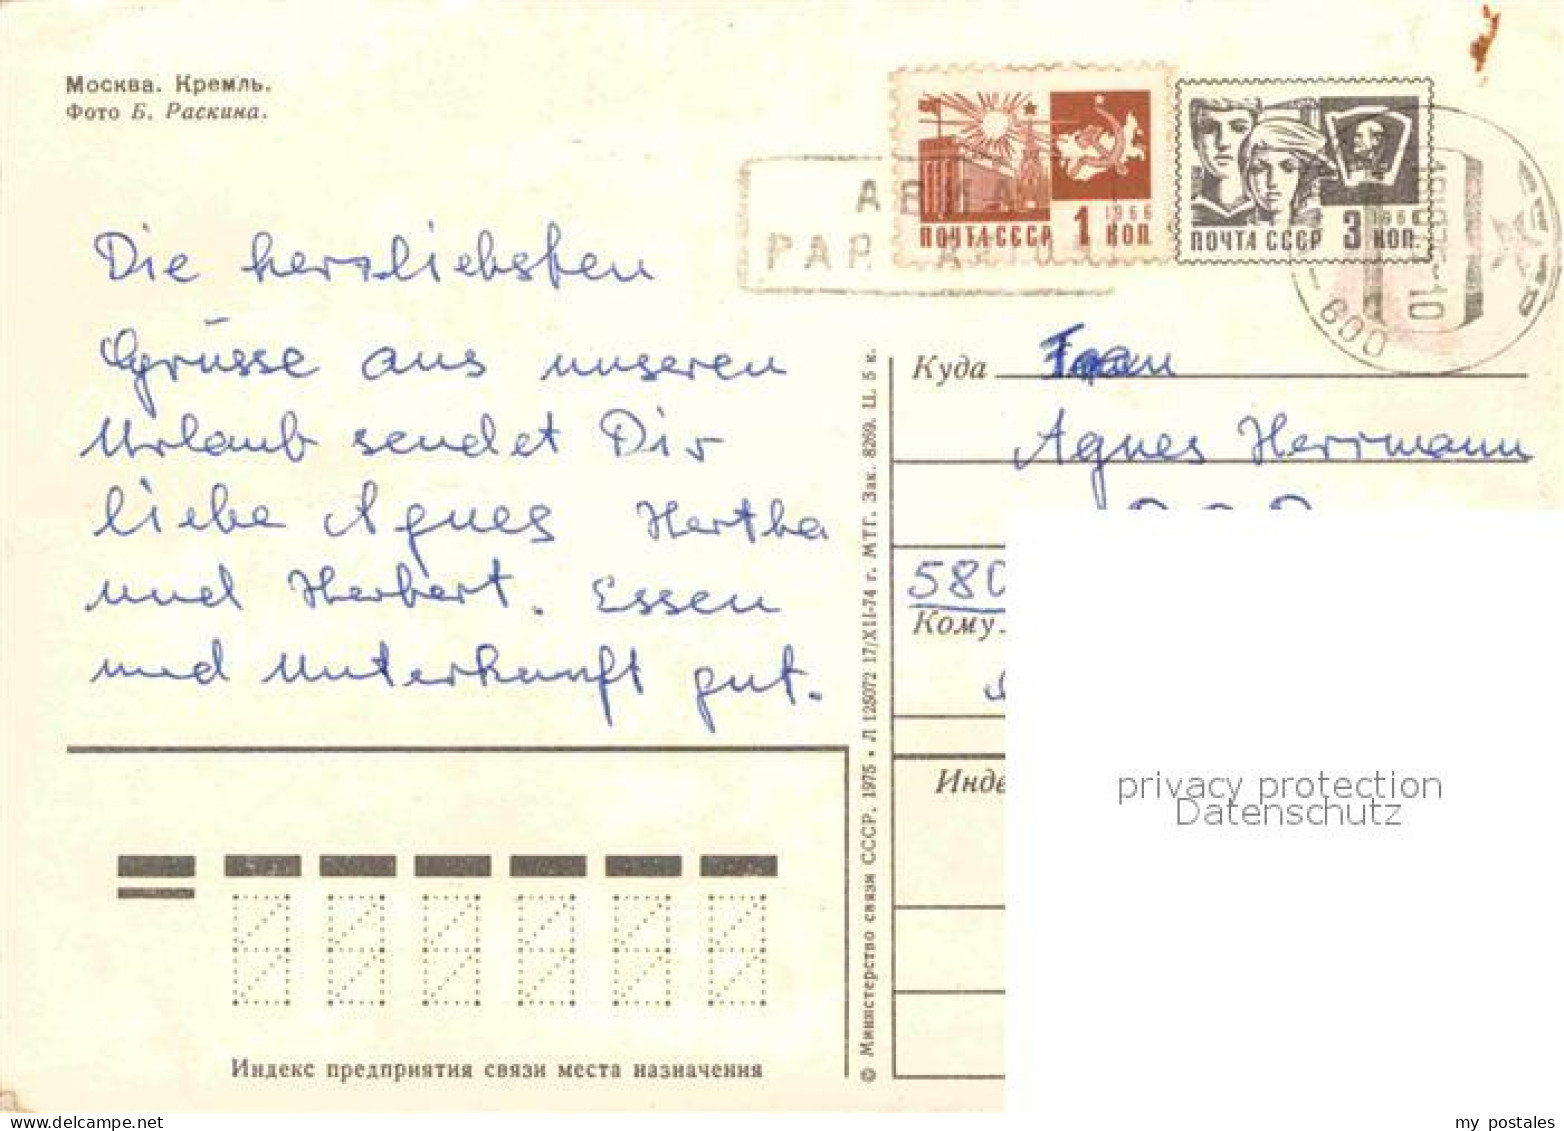 Москва. Кремль.
Фото Б. Раскина.
АВИА
PAR AVION
ПОЧТА СССР 1 1966 КОП.
ПОЧТА СССР 3 1966 КОП.
600
Die herzliebsten
Grüsse aus unseren
Urlaub sendet Dir
liebe Agnes Hertha
und Herbert. Essen
und Unterkunft gut.
Куда Frau
Agnes Herrmann
580
Кому
Инде
© Министерство связи СССР, 1975 • Л 125072 17/XII-74 г. МТГ. Зак. 8269. Ц. 5 к.
Индекс предприятия связи места назначения
privacy protection
Datenschutz
my postales